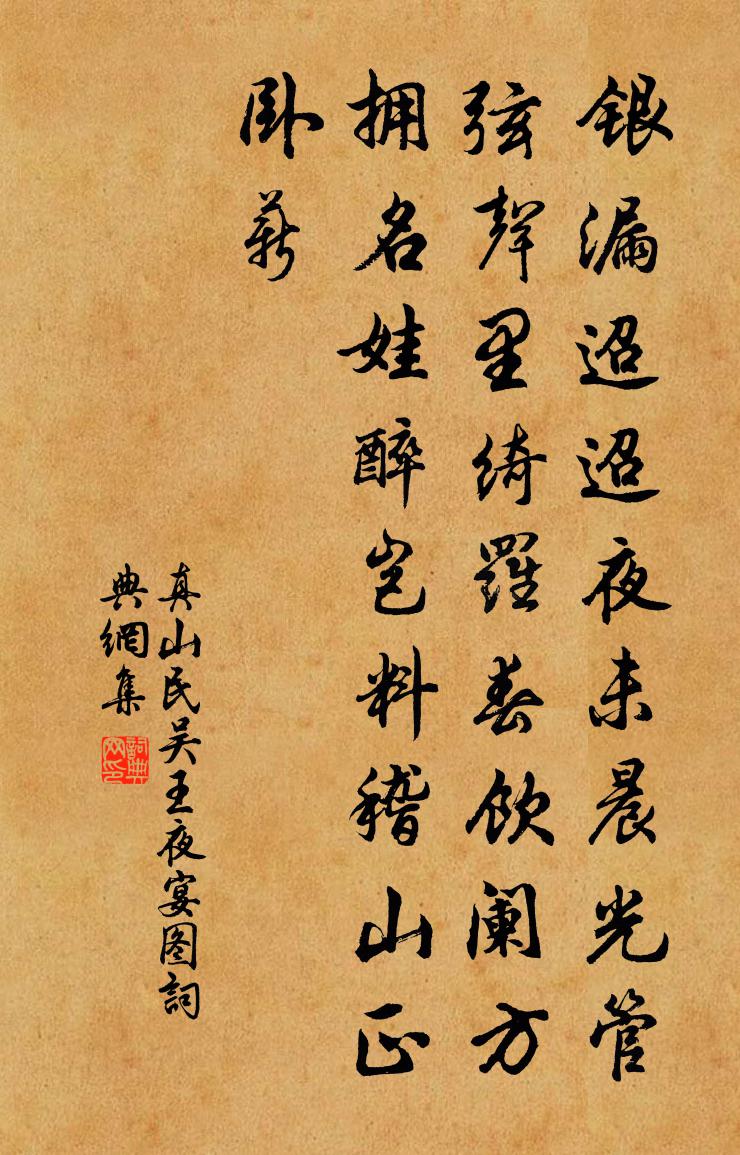 银漏迢迢夜未晨光管
弦聲里綺羅春飲阑方
拥名娃醉岂料稽山正
卧薪
真山民吴王夜宴图詞
典網集
詞典网印